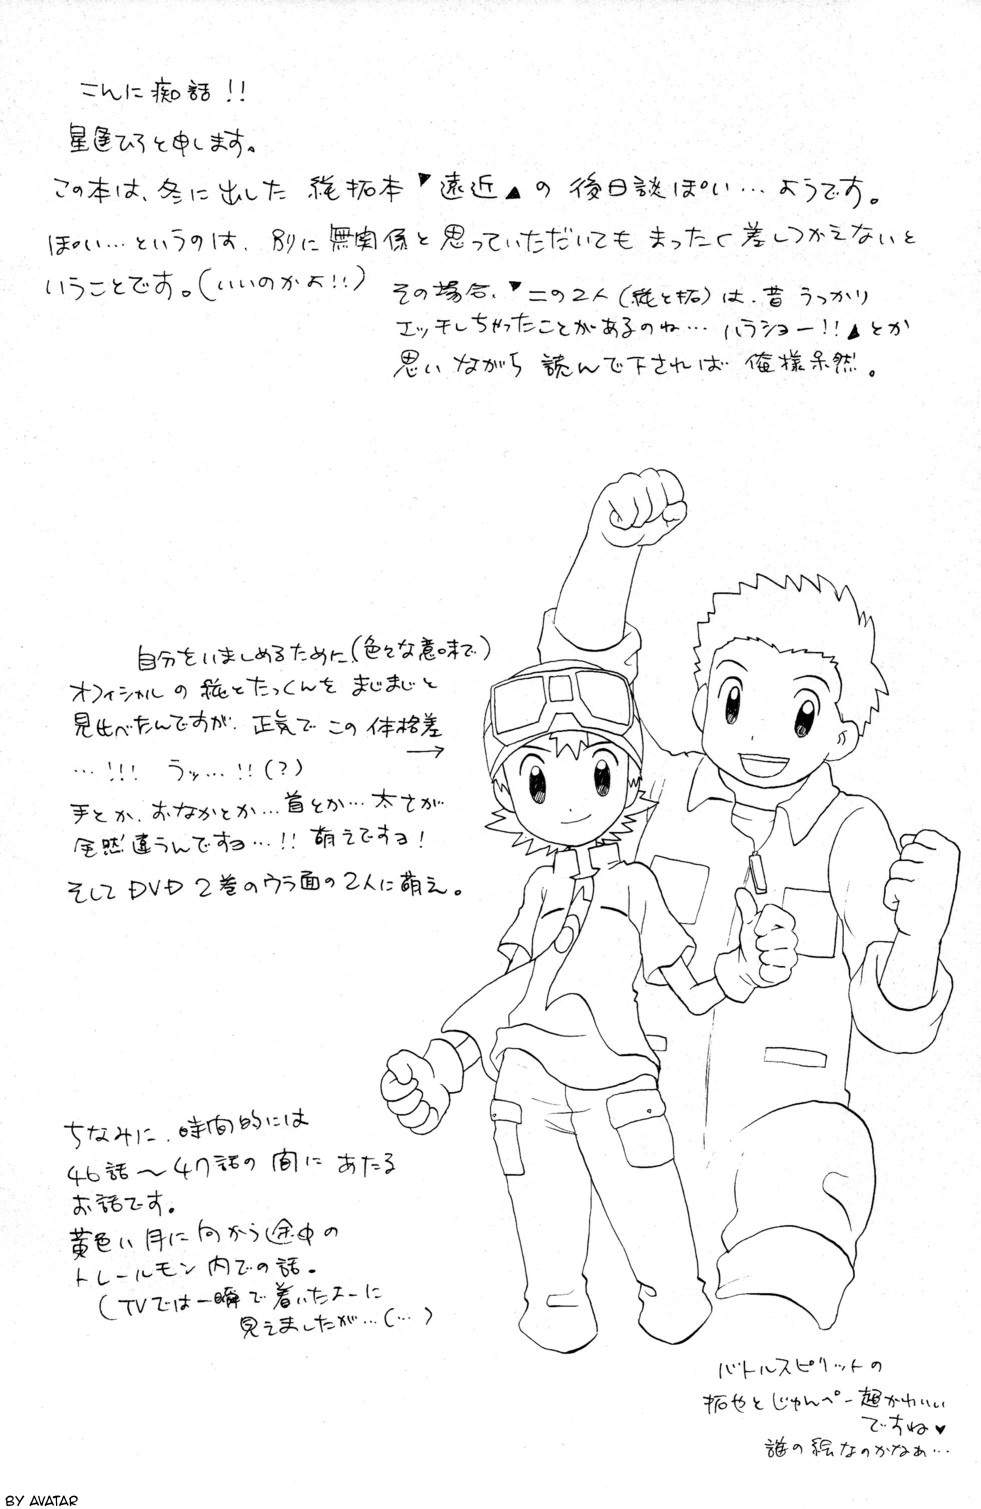 こんに痴話!!
星逢ひろと申します。
この本は、冬に出した 純拓本▼遠近▲の 後日談ぽい…ようです。
ぽい…というのは、別に無関係と思っていただいてもまったく差しつかえないと
いうことです。(いいのかよ!!)
その場合、▼この2人(純と拓)は、昔 うっかり
エッチしちゃったことがあるのね… ハラショー!!▲とか
思いながら 読んで下されば 俺様呆然。
自分をいましめるために(色々な意味で)
オフィシャルの 純とたっくんを まじまじと
見比べたんですが、正気で この 体格差
…!!! うッ…!!(?)
手とか、おなかとか…首とか… 太さが
全然違うんですヨ…!! 萌えですヨ!
そして DVD 2巻のウラ面の2人に萌え。
ちなみに、時間的には
46話〜47話の 間に あたる
お話です。
黄色い月に向かう途中の
トレールモン 内での話。
(TVでは一瞬で着いたよーに
見えましたが…(…)
バトルスピリットの
拓也とじゅんぺー超かわいい
ですね♥
誰の絵なのかなぁ…
BY AVATAR